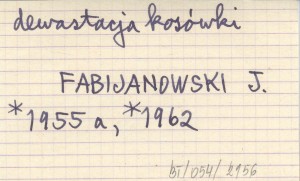 dewastacja kosówki
FABIJANOWSKI J.
*1955 a, *1962
BI/054/2956